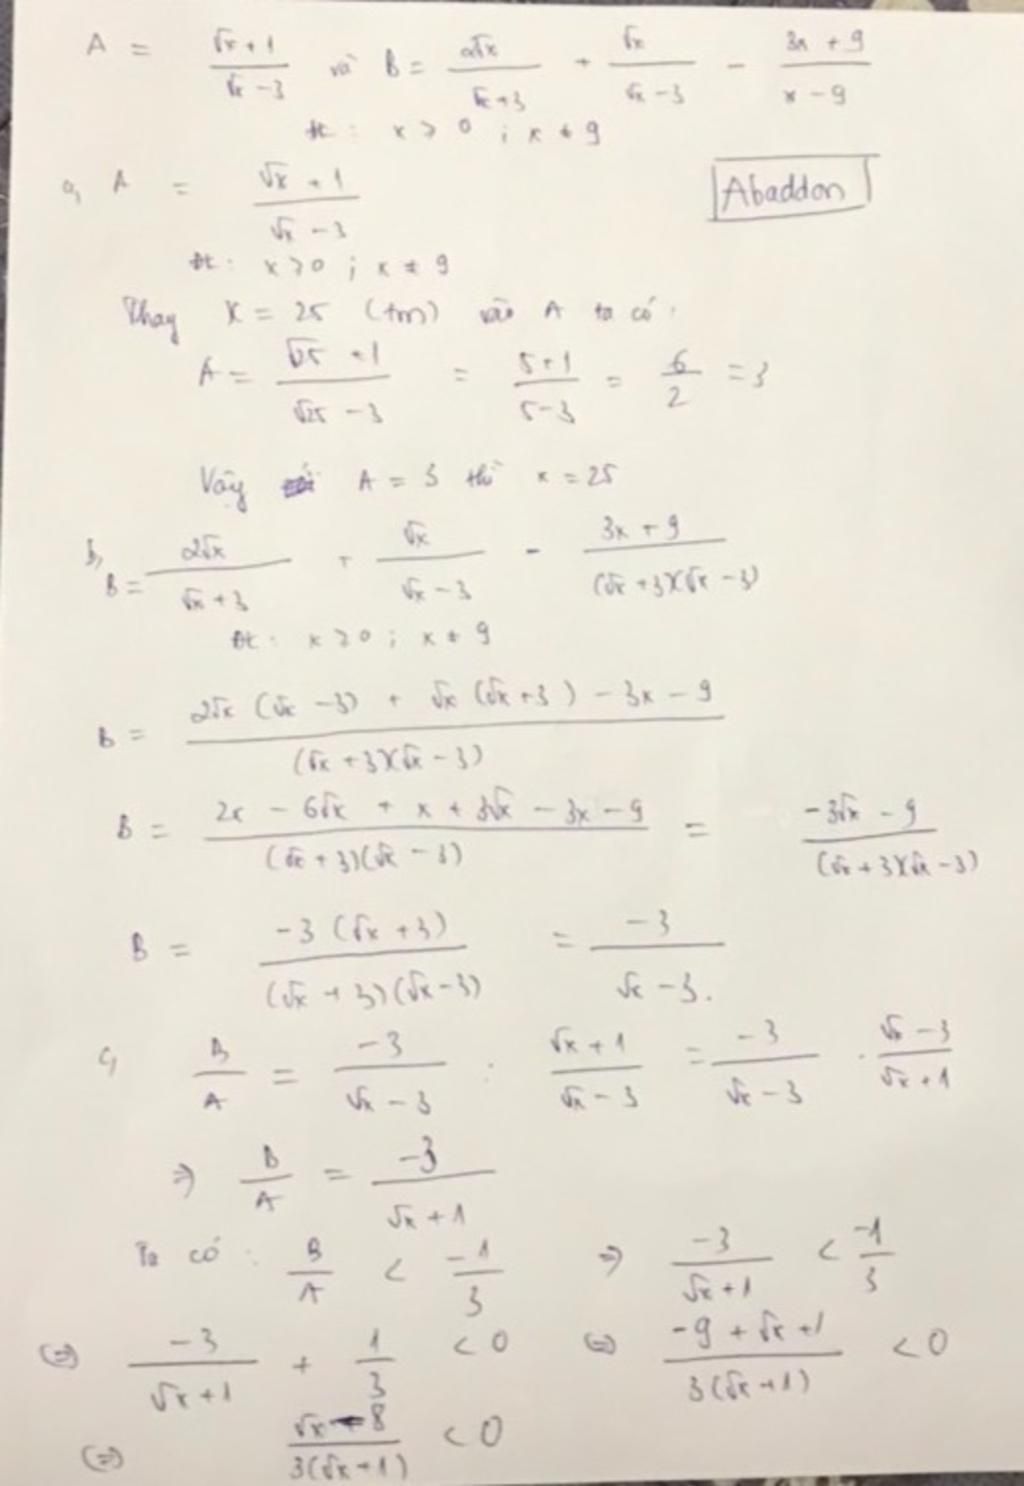 A = (√x + 1)/(√x - 3) và B = 2√x/(√x + 3) + √x/(√x - 3) - (3x + 9)/(x - 9)
đk : x ≥ 0 ; x ≠ 9
a, A = (√x + 1)/(√x - 3)
Abaddon
đk : x ≥ 0 ; x ≠ 9
Thay x = 25 (tm) vào A ta có :
A = (√25 + 1)/(√25 - 3) = (5+1)/(5-3) = 6/2 = 3
Vậy A = 3 thì x = 25
b, B = 2√x/(√x + 3) + √x/(√x - 3) - (3x + 9)/((√x + 3)(√x - 3))
đk : x ≥ 0 ; x ≠ 9
B = (2√x (√x - 3) + √x (√x + 3) - 3x - 9)/((√x + 3)(√x - 3))
B = (2x - 6√x + x + 3√x - 3x - 9)/((√x + 3)(√x - 3)) = (-3√x - 9)/((√x + 3)(√x - 3))
B = -3 (√x + 3)/((√x + 3)(√x - 3)) = -3/(√x - 3).
c, B/A = -3/(√x - 3) : (√x + 1)/(√x - 3) = -3/(√x - 3) . (√x - 3)/(√x + 1)
⇒ B/A = -3/(√x + 1)
Ta có : B/A < -1/3 ⇒ -3/(√x + 1) < -1/3
⇔ -3/(√x + 1) + 1/3 < 0 ⇔ (-9 + √x + 1)/(3(√x + 1)) < 0
⇔ (√x - 8)/(3(√x + 1)) < 0